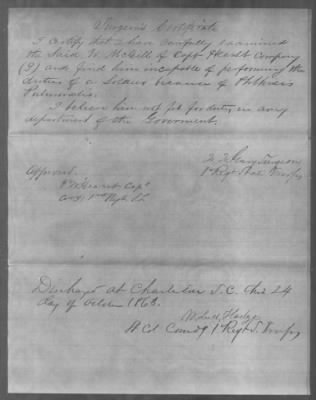 Surgeon's Certificate
I certify that I have carefully examined
the said W. McGill of Capt Company
and find him incapable of performing the
duties of a Soldier because of Phthisis
Pulmonalis.
I believe him not fit for duty in any
department of the Goverment.
Surgeon
1 Regt
Approved
Capt
Discharged at Charleston S.C. this 24
day of October 1863.
Lt Col Comdg 1 Regt S.